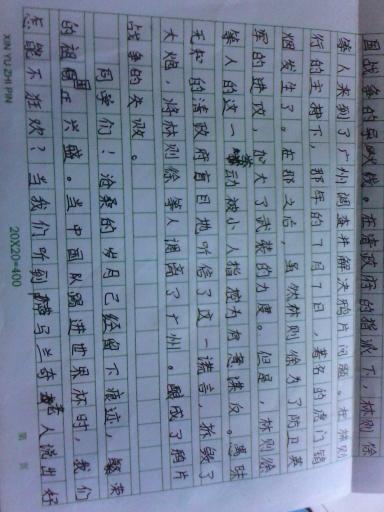 国战争的导火线。在清政府的指派下，林则徐
等人来到了广州调查并解决鸦片问题。在林则
行的主持下，那年的7月7日，著名的虎门销
烟发生了。在那之后，虽然林则徐为了防卫英
军的进攻，加大了武装的力度。但是，林则徐
等人的这一举动被小人指控为有意谋反。愚昧
无知的清政府盲目地听信了这一谎言，拆毁了
大炮，将林则徐等人调离了广州。酿成了鸦片
战争的失败。
同学们！沧桑的岁月已经留下痕迹，繁荣
的祖国正兴盛。当中国队踢进世界杯时，我们
怎能不狂欢？当我们听到马兰奇老人说出好
20X20=400
XIN YU ZHI PIN